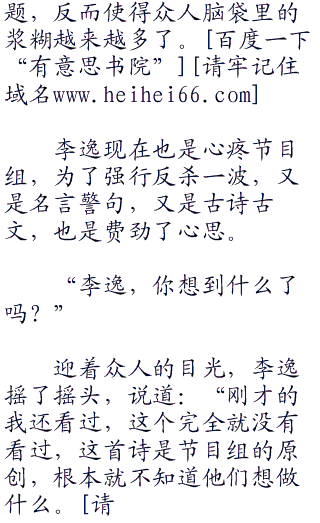 题，反而使得众人脑袋里的
浆糊越来越多了。[百度一下
“有意思书院”][请牢记住
域名www.heihei66.com]
李逸现在也是心疼节目
组，为了强行反杀一波，又
是名言警句，又是古诗古
文，也是费劲了心思。
“李逸，你想到什么了
吗？”
迎着众人的目光，李逸
摇了摇头，说道：“刚才的
我还看过，这个完全就没有
看过，这首诗是节目组的原
创，根本就不知道他们想做
什么。[请